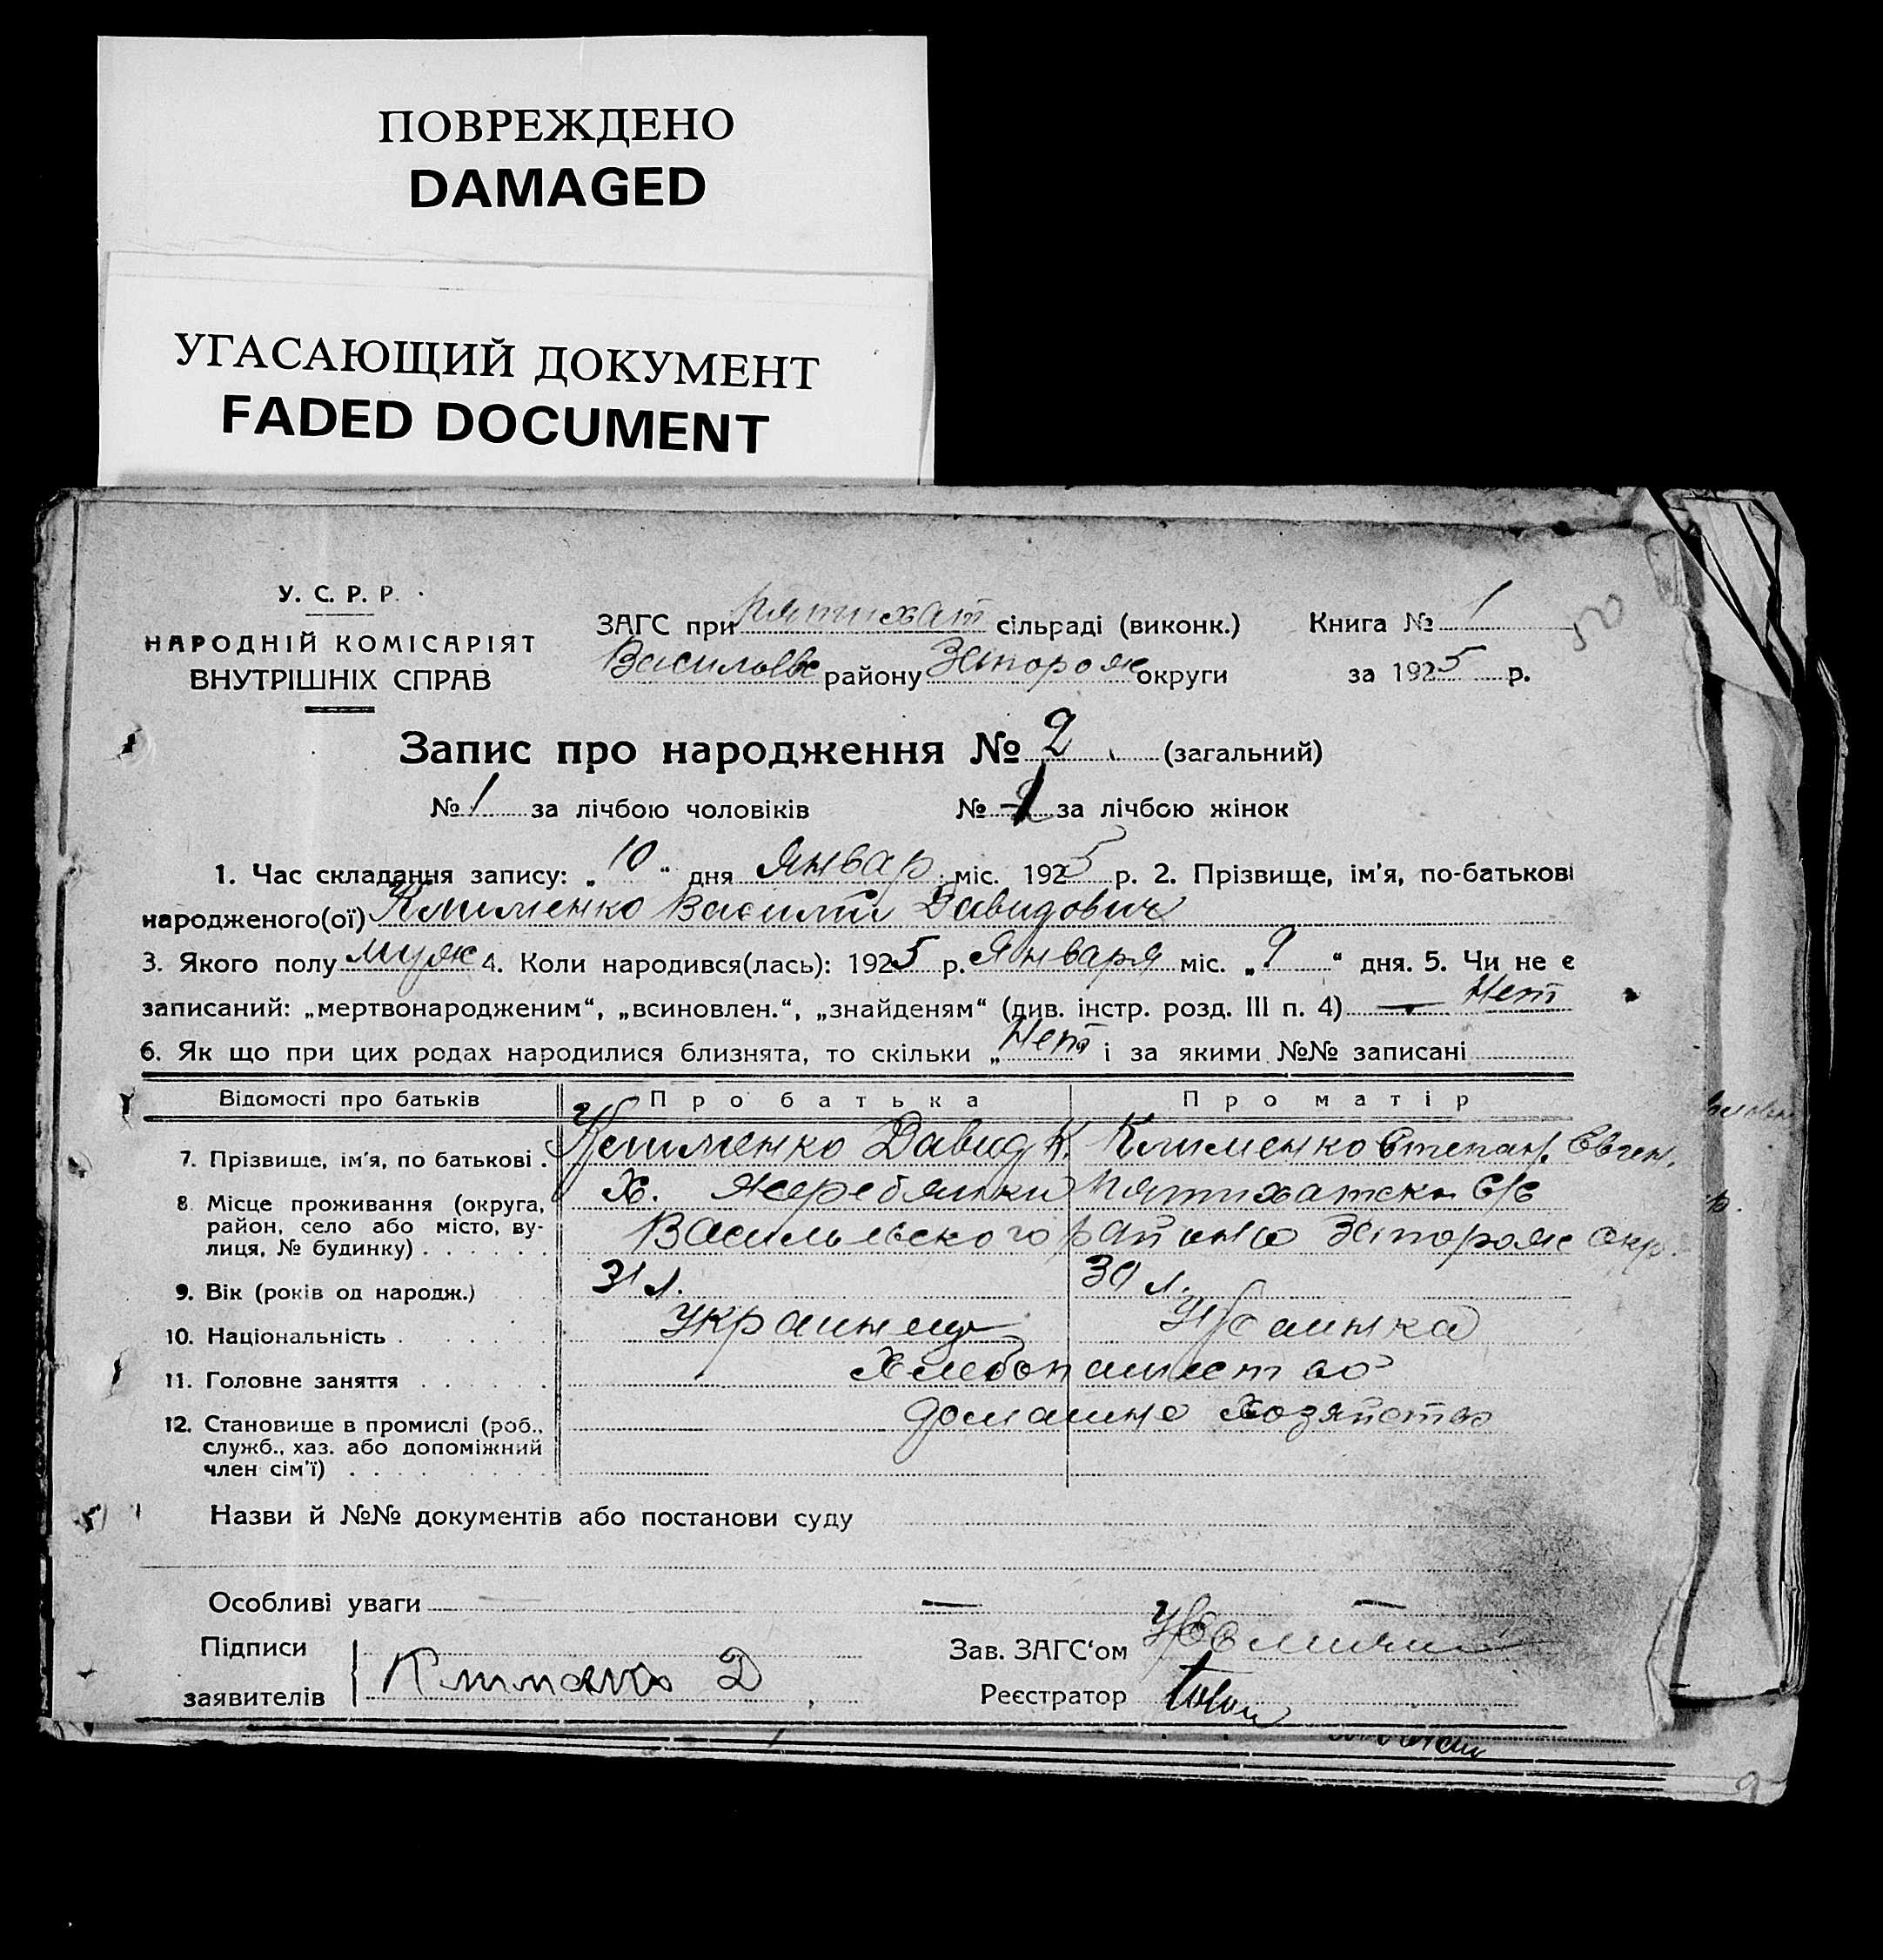 ПОВРЕЖДЕНО
DAMAGED
УГАСАЮЩИЙ ДОКУМЕНТ
FADED DOCUMENT
У. С. Р. Р.
НАРОДНІЙ КОМІСАРІЯТ
ВНУТРІШНІХ СПРАВ
ЗАГС при Пятихат сільраді (виконк.)
района Запорож округи
Книга № 1
за 1925 р.
500
Запис про народження № 2 (загальний)
№ 1 за лічбою чоловіків № 1 за лічбою жінок
1. Час складання запису: „10“ дня Январ міс. 1925 р. 2. Прізвище, ім'я, по-батькові
народженого(ої) Клименко Василий Давидович
3. Якого полу муж 4. Коли народився(лась): 1925 р. Января міс. „9“ дня. 5. Чи не є
записаний: „мертвонародженим“, „всиновлен.“, „знайденям“ (див. інстр. розд. III п. 4) — Нет
6. Як що при цих родах народилися близнята, то скільки „Нет і за якими №№ записані
Відомості про батьків Про батька Про матір
7. Прізвище, ім'я, по батькові . Клименко Давид К. Клименко Степан. Евген.
8 Місце проживання (округа, район, село або місто, вулиця, № будинку) Х. Жеребянки Пятихатск с/с
Васильевского района Запорож окр.
9. Вік (років од народж.) 31 л. 30 л.
10. Національність Украинец Украинка
11. Головне заняття Хлебопашество
12. Становище в промислі (роб., служб., хаз. або допоміжний член сім'ї) домашнє хозяйство
Назви й №№ документів або постанови суду
Особливі уваги — —
Підписи
заявителів Клименко Д
Зав. ЗАГС'ом
Реєстратор